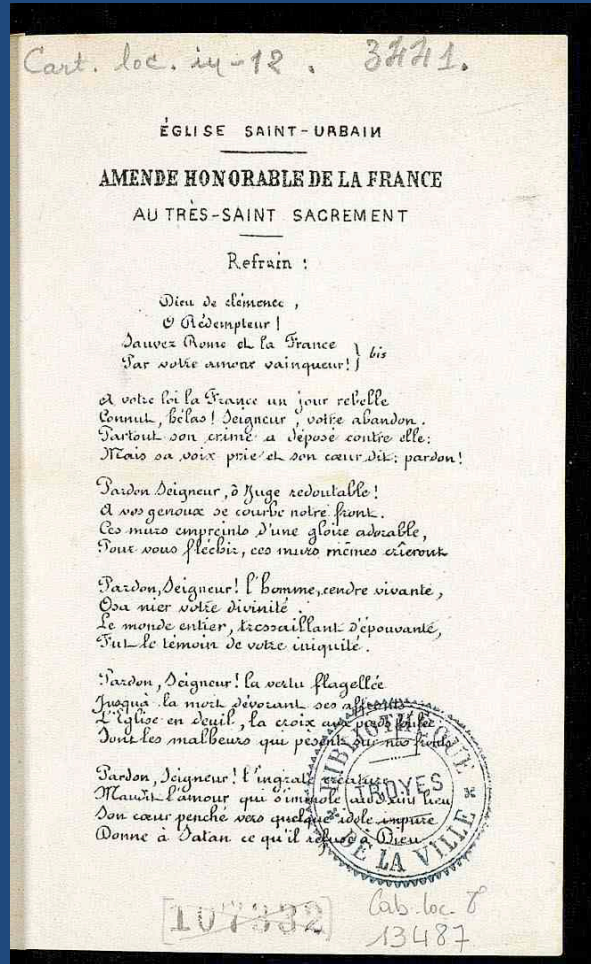 Cart. loc. in-12. 3441.
ÉGLISE SAINT-URBAIN
AMENDE HONORABLE DE LA FRANCE
AU TRÈS-SAINT SACREMENT
Refrain :
Dieu de clémence,
O Rédempteur !
Sauvez Rome et la France
Par votre amour vainqueur ! } bis
A votre loi la France un jour rebelle
Connut, hélas ! Seigneur, votre abandon.
Partout son crime a déposé contre elle :
Mais sa voix prie et son cœur dit : pardon !
Pardon Seigneur, ô Juge redoutable !
A vos genoux se courbe notre front.
Ces murs empreints d'une gloire adorable,
Pour vous fléchir, ces murs mêmes crieront
Pardon, Seigneur ! l'homme, cendre vivante,
Osa nier votre divinité.
Le monde entier, tressaillant d'épouvante,
Fut le témoin de votre iniquité.
Pardon, Seigneur ! la vertu flagellée
Jusqu'à la mort dévorant ses affronts
L'Eglise en deuil, la croix aux pieds foulée
Sont les malheurs qui pèsent sur nos fronts
Pardon, Seigneur ! l'ingrate créature
Maudit l'amour qui s'immole au Saint lieu
Son cœur penché vers quelque idole impure
Donne à Satan ce qu'il refuse à Dieu
BIBLIOTHÈQUE
TROYES
DE LA VILLE
[107332]
Cab. loc. 8°
13487